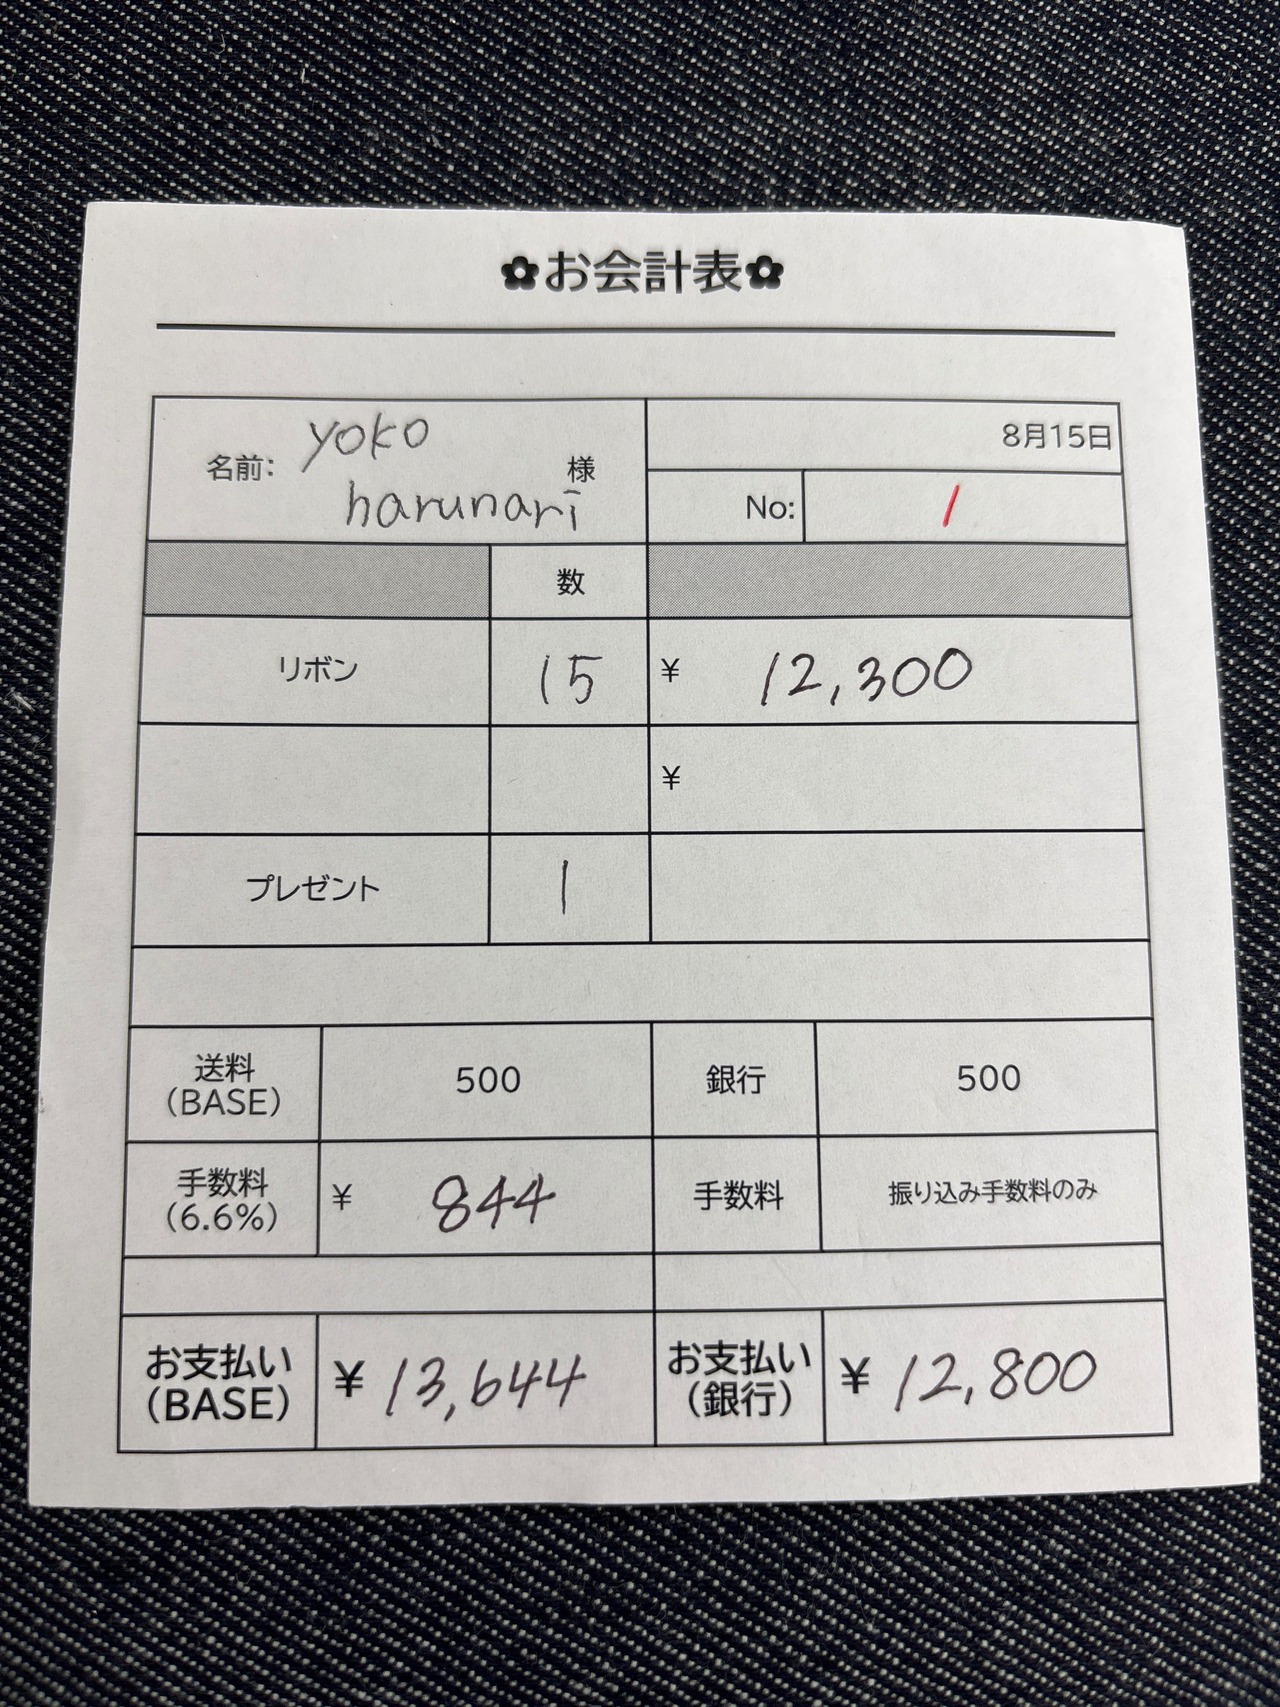 ✿お会計表✿
名前: yoko harunari 様
8月15日
No: 1
数
リボン 15 ¥ 12,300
¥
プレゼント 1
送料(BASE) 500 銀行 500
手数料(6.6%) ¥ 844 手数料 振り込み手数料のみ
お支払い(BASE) ¥ 13,644 お支払い(銀行) ¥ 12,800